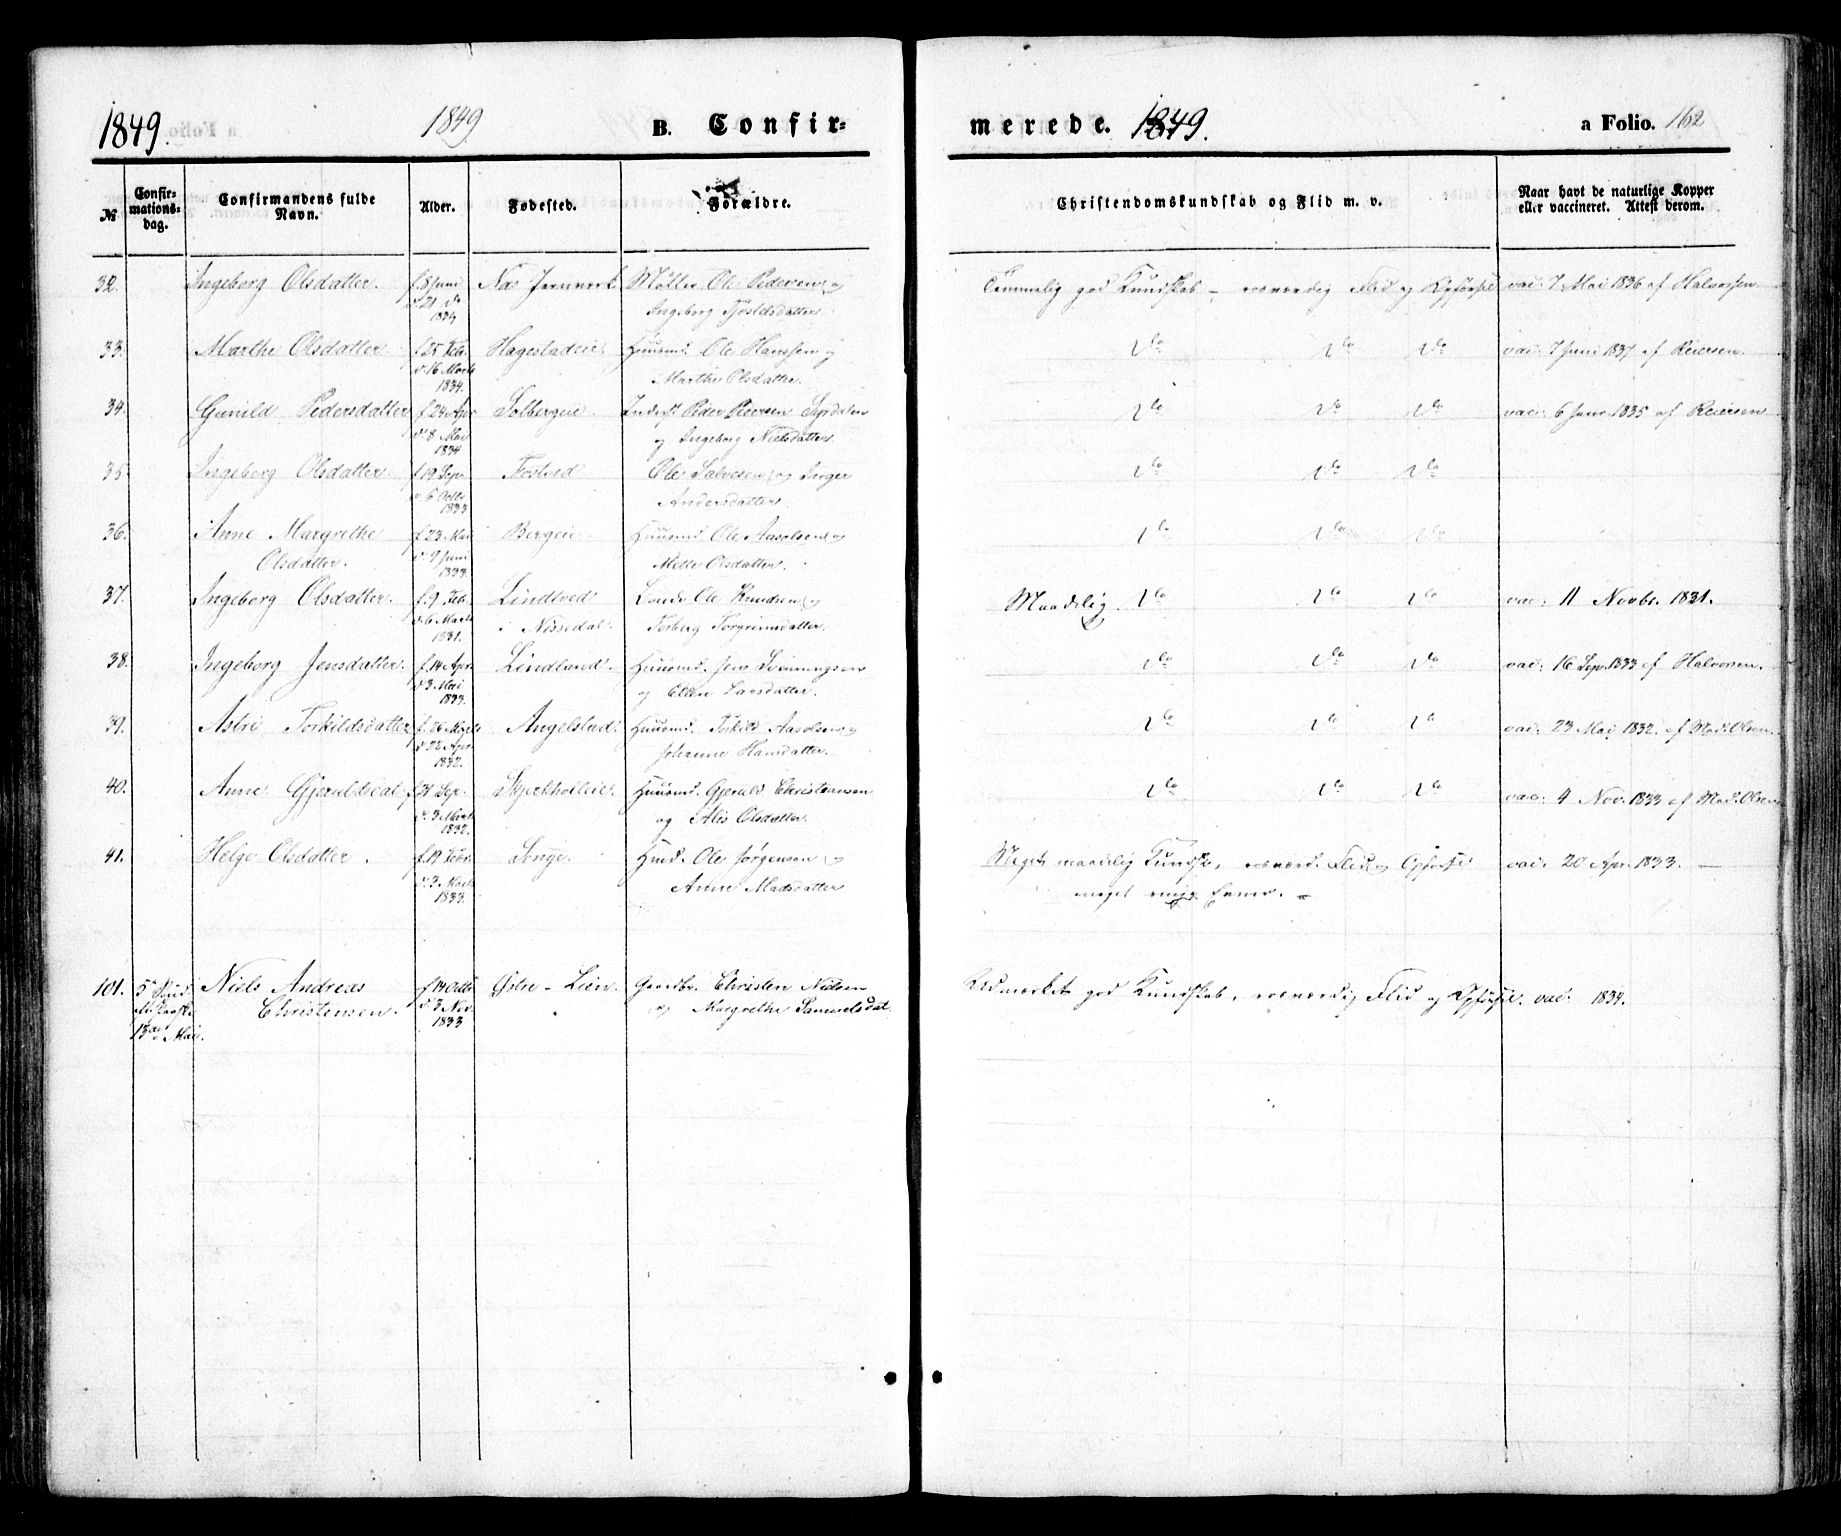 1849. 1849 B. Confirmerede. 1849. a Folio. 162
№ Confirmationsdag. Confirmandens fulde Navn. Alder. Fødested. Forældre. Christendomskundskab og Flid m. v. Naar havt de naturlige Kopper eller vaccineret. Attest derom.
32. Ingeborg Olsdatter. f. 8 Juni Næs Jernverk Møller Ole Pedersen og Temmelig god Kundskab - roesværdig Flid og Opførsel vac: 7 Mai 1836 af Halvorsen
d. 21 do Ingeborg Tjøstelsdatter
1834
33. Marthe Olsdatter f. 25 Febr. Hagestadeie Huusmd. Ole Hanssen og do do do vac: 7 Juni 1837 af Reiersen.
d. 16 Marts Marthe Olsdatter.
1834.
34. Gunild Pedersdatter f. 24 Apr Solbergeie. Inderst Peder Pedersen do do do vac: 6 1835 af Reiersen
d. 8 Mai og Ingeborg Nielsdatter.
1834
35 Ingeborg Olsdatter. f. 19 Sep. Fosteved Ole Salvesen og Inger do do do
d. 6 Octbr Andersdatter
1833
36. Anne Margrethe f. 23 Mai Bergeie. Huusmd Ole Aasolsen og do do do
Olsdatter. d. 9 Juni Mette Olsdatter.
1833.
37. Ingeborg Olsdatter. f. 9 Feb. Lindtved Ole Knudsen og Maadelig do do do vac: 11 Novbr. 1831.
d. 6 Marts i Nissedal. Torgrimsdatter.
1831.
38. Ingeborg Jensdatter. f. 14 Apr. Lindland. Huusmd. Jens do do do vac: 16 Sep. 1833 af Halvorsen.
d. 3 Mai og Ellen Larsdatter.
1833.
39. Astri Torkildsdatter f. 26 Marts Angelstad. Huusmd. Torkild Aasolsen og do do do vac: 23 Mai 1832. af Mad: Olsen.
d. 22 Apr Johanne Hansdatter.
1832.
40. Anne Gjeruldsdat f. 21 Sep. Huusmd. Gjeruld Christensen do do do vac: 4 Nov. 1833 af Mad: Olsen
d. 3 og Alis Olsdatter.
1832.
41. Helge Olsdatter. f. 19 Febr. Songe. Hmd. Ole Jørgensen og Meget maadelig Kundsk., roesværd. Flid og Opførsel vac: 20 Apr. 1833. —
d. 3 Marts Anne Madsdatter meget ringe Evner. -
1833.
101. 5 Niels Andreas f 14 Octb Østre-Lien Gaardbr. Christen Nielsen Udmærket god Kundskab, roesværdig Flid og Opførsel. vac: 1834.
efter Paaske Christensen. d. 3 Nov. og Margrethe Samuelsdat.
13de Mai. 1833